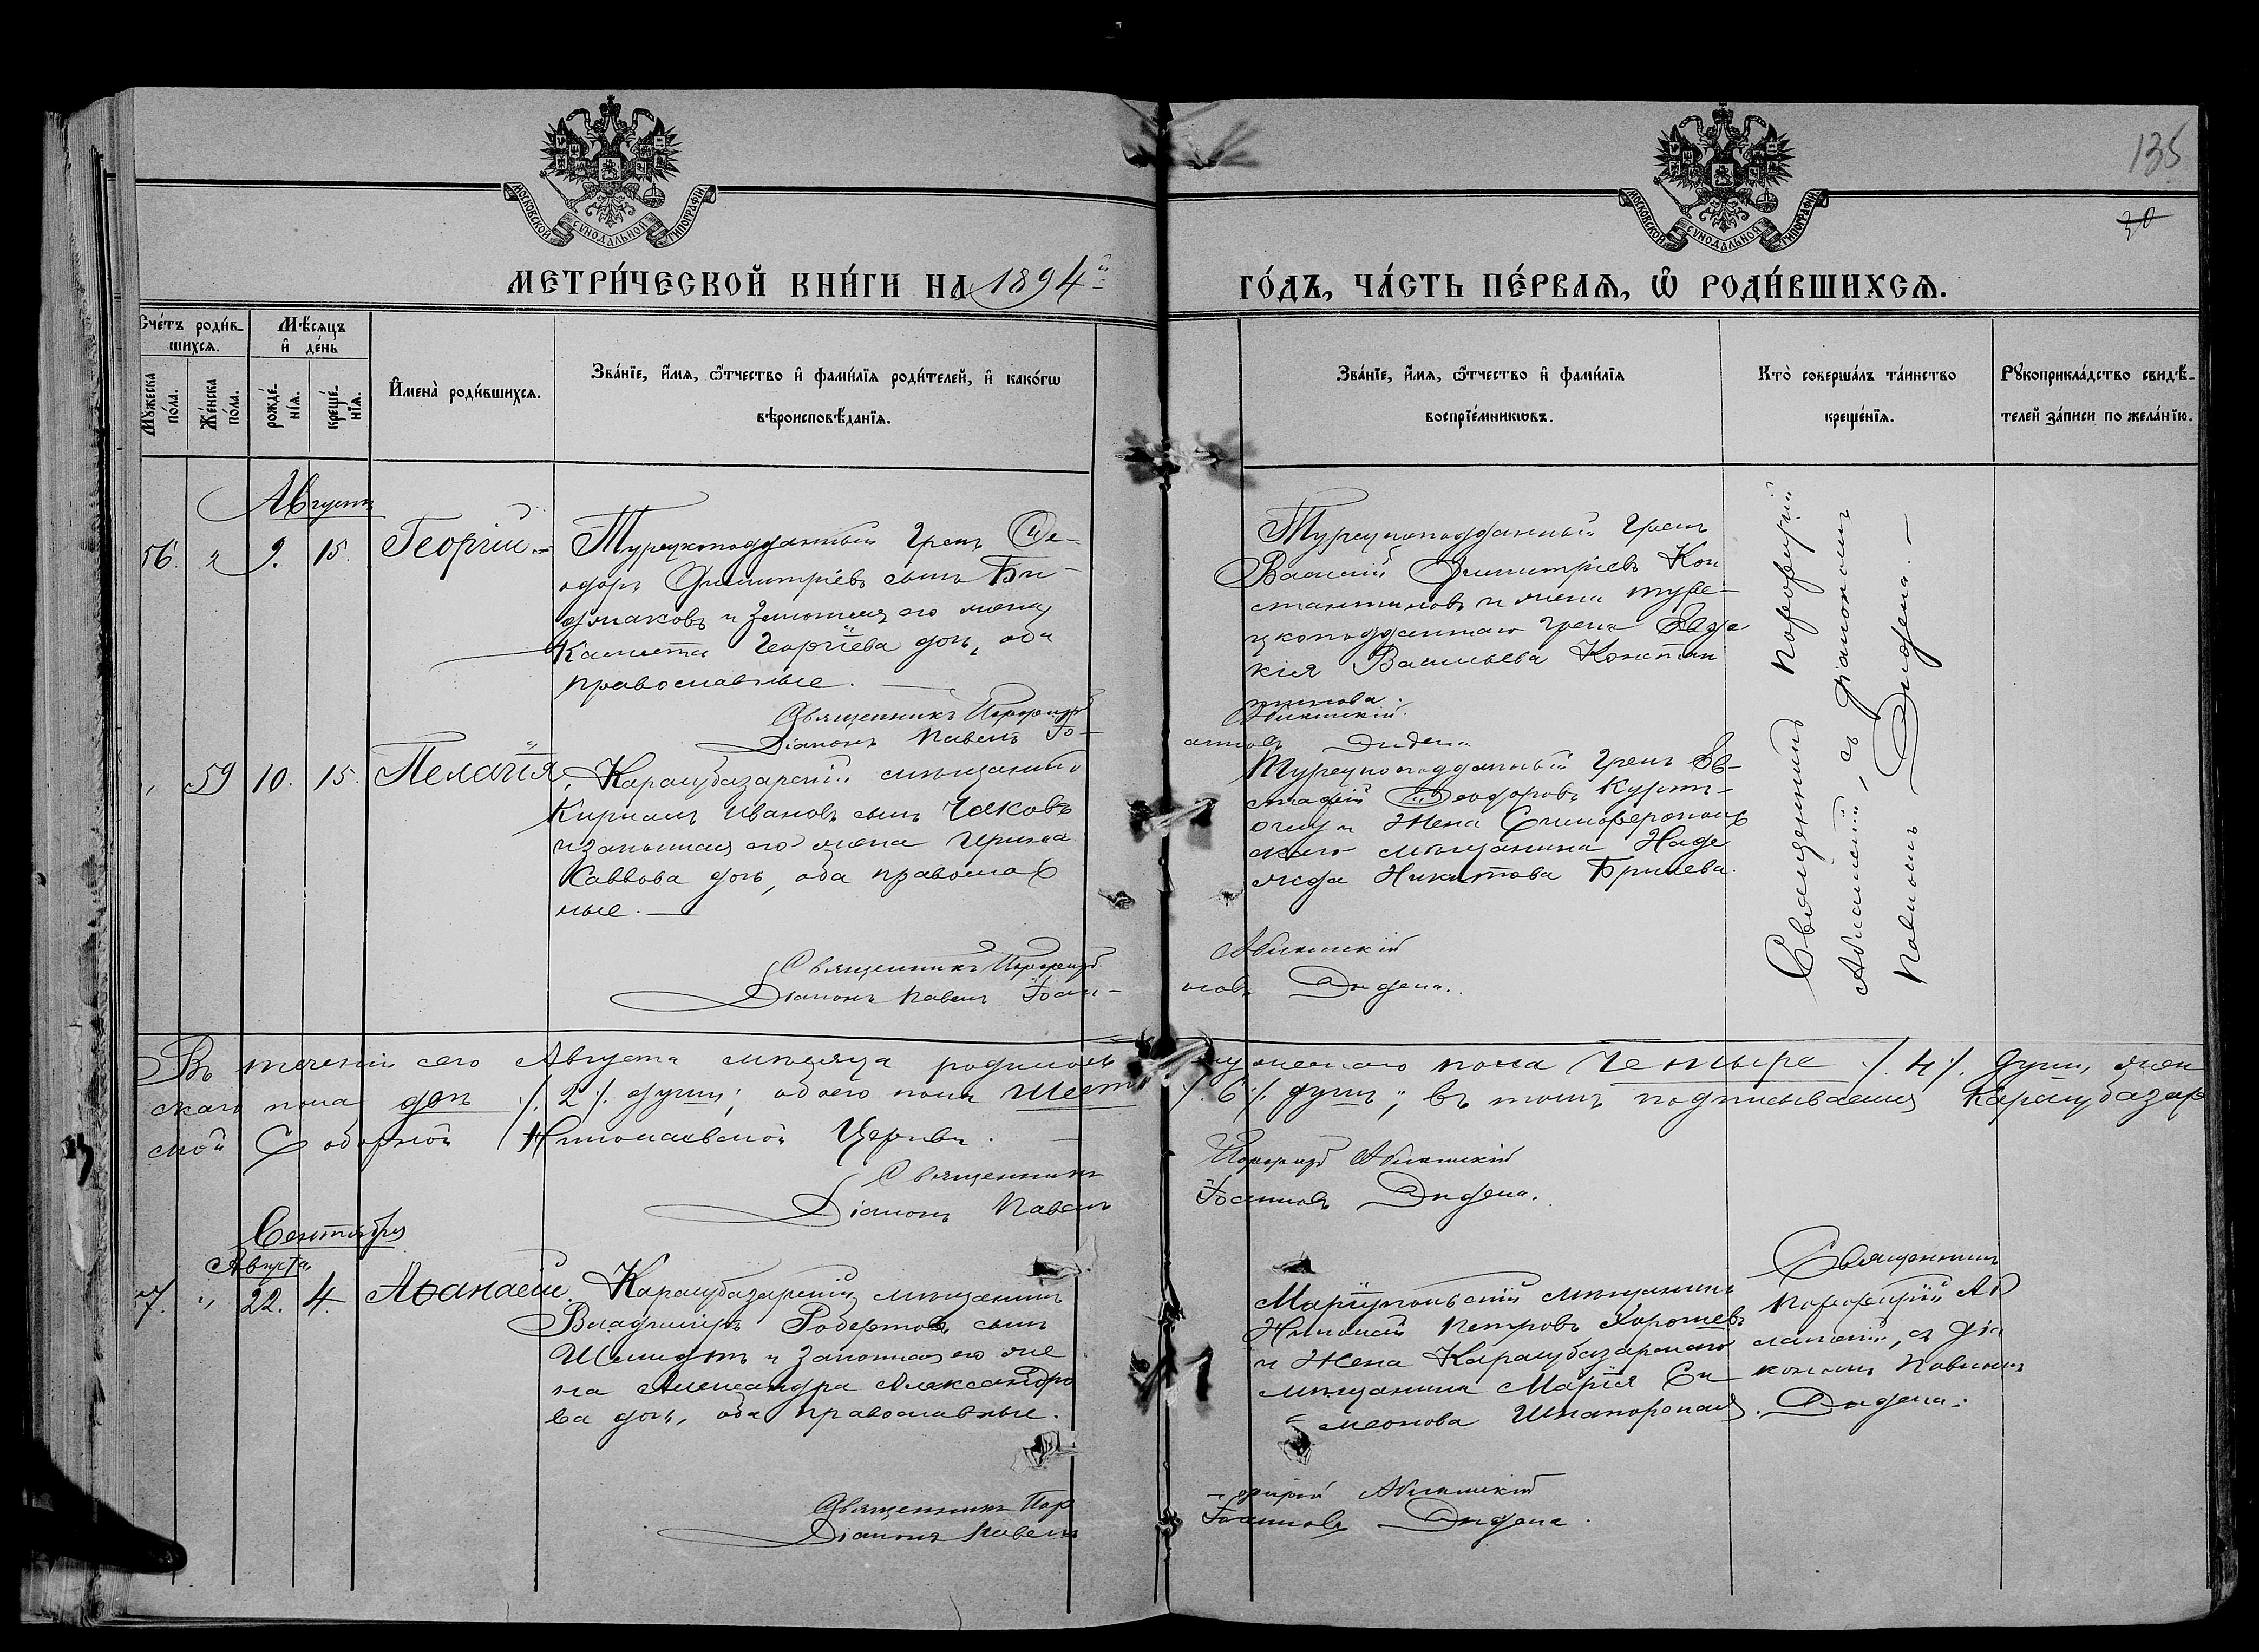 135
30
МОСКОВСКОЙ СѴНОДАЛЬНОЙ ТИПОГРАФІИ
МОСКОВСКОЙ СѴНОДАЛЬНОЙ ТИПОГРАФІИ
МЕТРИ́ЧЕСКОЙ КНИ́ГИ НА 1894й
ГО́ДЪ, ЧА́СТЬ ПЕ́РВАѦ, Ѽ РОДИ́ВШИХСѦ.
Сче́тъ роди́в-
шихсѧ.
Мꙋ́жеска по́ла.
Же́нска по́ла.
Мѣ́сяцъ
и҆ де́нь
рожде́-
нїѧ.
креще́-
нїѧ.
И҆мена̀ роди́вшихсѧ.
Зва́нїе, и҆́мѧ, ѻ҆́тчество и҆ фами́лїѧ роди́телей, и҆ како́гѡ
вѣроисповѣ́данїѧ.
Зва́нїе, и҆́мѧ, ѻ҆́тчество и҆ фами́лїѧ
воспрїе́мникѡвъ.
Кто̀ соверша́лъ та́инство
креще́нїѧ.
Рꙋкоприкла́дство свидѣ́-
телей за́писи по жела́нїю.
Августъ
56. " 9. 15. Георгій.
Турецкоподданный Грекъ Ѳе-
одоръ Димитріевъ сынъ
и законная его жена
Георгіева дочь, оба
православные.
Священникъ Порфирій
Діаконъ Павелъ Іо-
Турецкоподданный Грекъ
Василій Димитріевъ Кон
стантиновъ и жена туре-
цкоподданнаго Грека Евдо
кія Васильева Констан
тинова.
Абламскій.
анновъ Дидена
Священникъ Порфирій
Абламскій, съ діакономъ
Павломъ Дидена.
" 59 10. 15. Пелагія,
Карасубазарскій мѣщанинъ
Кириллъ Ивановъ сынъ Чаковъ
и законная его жена Ирина
Саввова дочь, оба православ
ные.
Священникъ Порфирій
Діаконъ Павелъ Іоан-
Турецкоподданный Грекъ Ев-
стафій Ѳеодоровъ Курт-
и Жена Симферополь
скаго мѣщанина Наде
жда Никитова Брилева.
Абламскій
новъ Дидена.
Въ теченіи сего Августа мѣсяца родилось мужескаго пола Четыре ./. 4 ./. души, жен
скаго пола двѣ ./. 2 ./. души; обоего пола Шесть ./. 6 ./. душъ; въ томъ подписываемся Карасубазар
ской Соборной Николаевской Церкви.
Священникъ Порфирій Абламскій
Діаконъ Павелъ Іоанновъ Дидена.
Сентябрь
Августа
7. " 22. 4. Аѳанасій.
Карасубазарскій мѣщанинъ
Владиміръ Робертовъ сынъ
Шмидтъ и законная его же
на Александра Александро
ва дочь, оба православные.
Священникъ Пор
Діаконъ Павелъ
Маріупольскій мѣщанинъ
Николай Петровъ Хорошевъ
и Жена Карасубазарскаго
мѣщанина Марія Си
меонова
фирій Абламскій
Іоанновъ Дидена.
Священникъ
Порфирій Аб
ламскій, съ діа
кономъ Павломъ
Дидена.